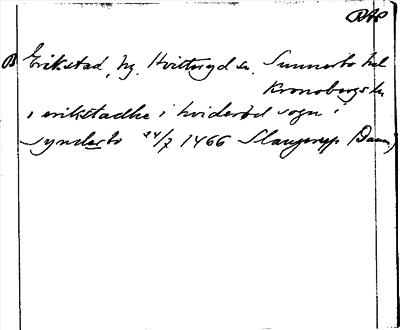 Erikstad, hg. Hvittaryd sn. Sunnerbo hd
Kronobergs län
i erikstadhe i hviderød sogn i
synderbo 24/7 1466 Slangerup (Danm.)